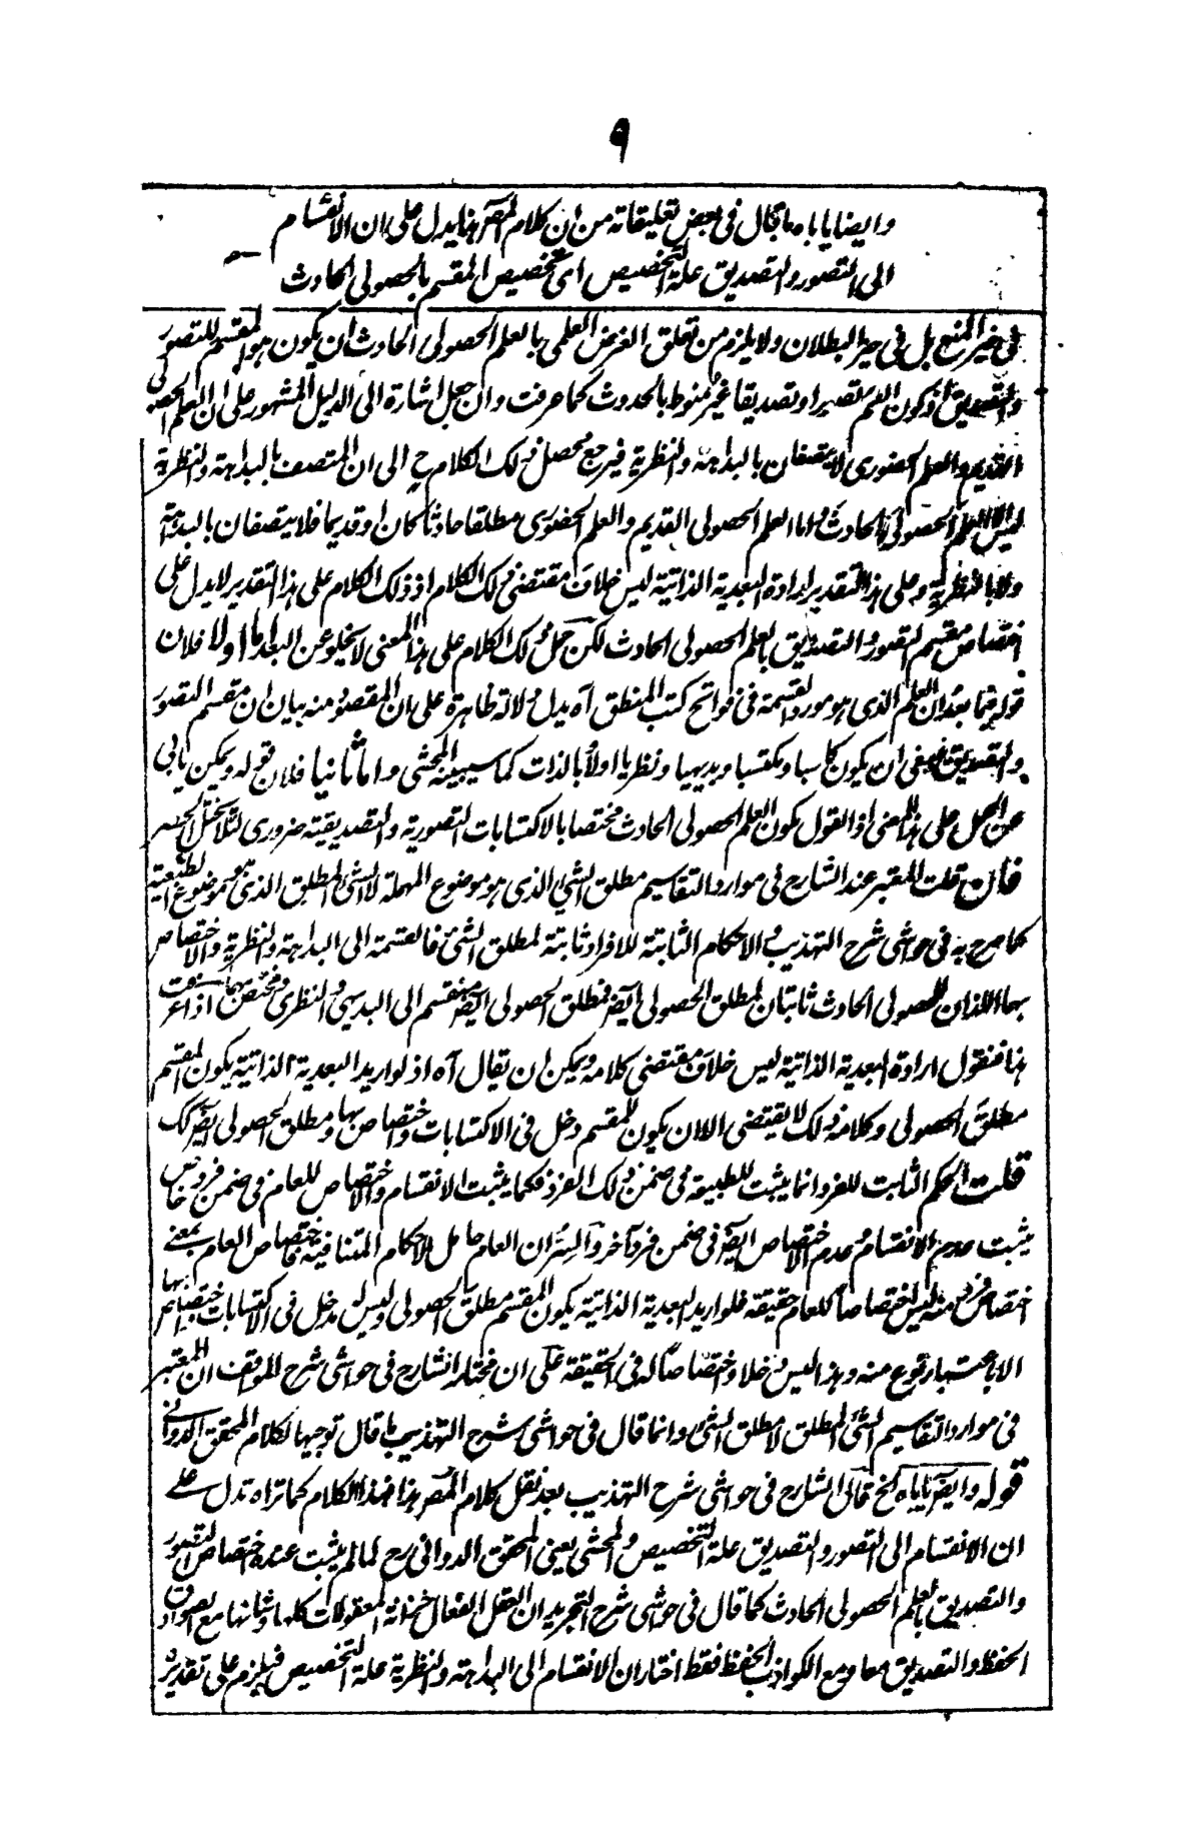 ٩
وايضا ياباه ما قال فى بعض تعليقاته من ان كلام المصر هنا يدل على ان الانقسام
الى التصور والتصديق علة التخصيص اى تخصيص المقسم بالحصولى الحادث
فى حيز المنع بل فى حيز البطلان ولا يلزم من تعلق الغرض العلمى بالعلم الحصولى الحادث ان يكون هو المقسم للتصور
والتصديق اذ كون العلم تصورا وتصديقا غير منوط بالحدوث كما عرفت وان جعل اشارة الى الدليل المشهور على ان العلم الحصولى
القديم والعلم الحضورى لا يتصفان بالبداهة والنظرية فيرجع محصل ذلك الكلام ح الى ان المتصف بالبداهة والنظرية
ليس الا العلم الحصولى الحادث واما العلم الحصولى القديم والعلم الحضورى مطلقا حادثا كان او قديما فلا يتصفان بالبداهة
ولا بالنظرية وعلى هذا التقدير ارادة البعدية الذاتية ليس خلاف مقتضى ذلك الكلام اذ ذلك الكلام على هذا التقدير لا يدل على
اختصاص مقسم التصور والتصديق بالعلم الحصولى الحادث لكن حمل ذلك الكلام على هذا المعنى لا يخلو عن البعد اما اولا فلان
قوله فيما بعد ان العلم الذى هو مورد القسمة فى فواتح كتب المنطق آه يدل دلالة ظاهرة على ان المقصود منه بيان ان مقسم التصور
والتصديق ينبغى ان يكون كاسبا ومكتسبا وبديهيا ونظريا اولا وبالذات كما سيبينه المحشى واما ثانيا فلان قوله ويمكن يابى
عن الحمل على هذا المعنى اذ القول بكون العلم الحصولى الحادث مختصا بالاكتسابات التصورية والتصديقية ضرورى لئلا يختل الحصر
فان قلت المعتبر عند الشارح فى موارد التقاسيم مطلق الشئ الذى هو موضوع المهملة لا الشئ المطلق الذى هو موضوع الطبيعية
كما صرح به فى حواشى شرح التهذيب والاحكام الثابتة للافراد ثابتة لمطلق الشئ فالقسمة الى البداهة والنظرية والاختصاص
بها اللذان للحصولى الحادث ثابتان لمطلق الحصولى ايضر فمطلق الحصولى ايضر منقسم الى البديهى والنظرى ومختص بهما اذا عرفت
هذا فنقول ارادة البعدية الذاتية ليس خلاف مقتضى كلامه ويمكن ان يقال آه اذ لو اريد البعدية الذاتية يكون المقسم
مطلق الحصولى وكلامه ذلك لا يقتضى الا ان يكون للمقسم دخل فى الاكتسابات واختصاص بها ومطلق الحصولى ايضر كك
قلت الحكم الثابت للفرد انما يثبت للطبيعة فى ضمن ذلك الفرد فكما يثبت الانقسام والاختصاص للعام فى ضمن فرد خاص
يثبت عدم الانقسام وعدم الاختصاص ايضر فى ضمن فرد آخر والسر ان العام حامل للاحكام المتنافية فاختصاص العام بمعنى
اختصاص فرد منه ليس اختصاصا للعام حقيقة فلو اريد البعدية الذاتية يكون المقسم مطلق الحصولى وليس له دخل فى الاكتسابات واختصاص بها
الا باعتبار نوع منه وهذا ليس دخلا واختصاصا له فى الحقيقة على ان مختار الشارح فى حواشى شرح المواقف ان المعتبر
فى موارد التقاسيم الشئ المطلق لا مطلق الشئ وانما قال فى حواشى شرح التهذيب ما قال توجيها لكلام المحقق الدوانى
قوله وايضر ياباه الخ قال الشارح فى حواشى شرح التهذيب بعد نقل كلام المصر هذا فهذا الكلام كما تراه تدل على
ان الانقسام الى التصور والتصديق علة التخصيص والمحشى يعنى المحقق الدوانى رح لما لم يثبت عنده اختصاص التصور
والتصديق بالعلم الحصولى الحادث كما قال فى حواشى شرح التجريد ان العقل الفعال خزانة المعقولات كلها وشانها مع الصوادق
الحفظ والتصديق معا ومع الكواذب الحفظ فقط اختار ان الانقسام الى البداهة والنظرية علة التخصيص فيلزم على تقديره